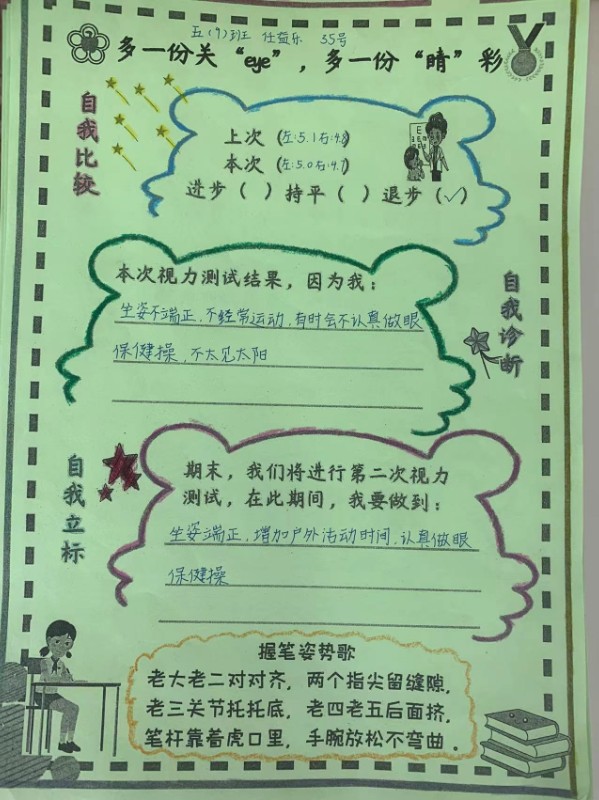 五（9）班 任益乐 35号
多一份关“eye”，多一份“睛”彩
自我比较
上次（左:5.1右:4.8）
本次（左:5.0右:4.7）
进步（ ）持平（ ）退步（✓）
本次视力测试结果，因为我：
坐姿不端正，不经常运动，有时会不认真做眼
保健操，不太见太阳
自我诊断
自我立标
期末，我们将进行第二次视力
测试，在此期间，我要做到：
坐姿端正，增加户外活动时间，认真做眼
保健操
握笔姿势歌
老大老二对对齐，两个指尖留缝隙，
老三关节托托底，老四老五后面挤，
笔杆靠着虎口里，手腕放松不弯曲。